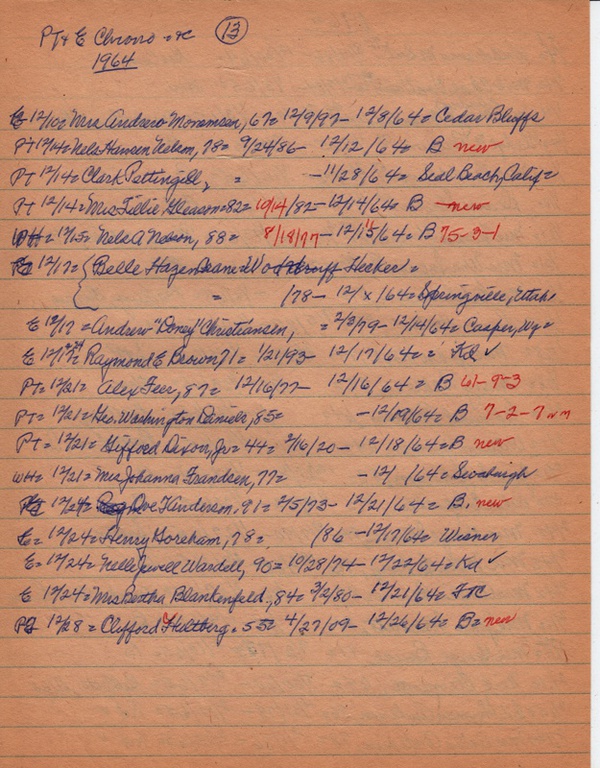 PT & E Chrono - etc 13
1964
E 12/10 = Mrs Andrew Monomsen, 67 = 12/9/97 - 12/8/64 = Cedar Bluffs
PT 12/14 = Nels Hansen Uslam, 78 = 9/24/86 - 12/12/64 = B new
PT 12/14 = Clark Pettingell, = - 11/28/64 = Seal Beach, Calif =
PT 12/14 = Mrs Tillie Gleason = 82 = 10/14/82 - 12/14/64 = B new
WH = 12/15 = Nels A Nelson, 88 = 8/18/77 - 12/15/64 = B 75-3-1
12/17 = { Belle Hazen Hecker =
= /78 - 12/x/64 = Springville, Utah
E 12/17 = Andrew "Doney" Christiansen, = 2/3/79 - 12/14/64 = Casper, Wy =
E 12/17 = Raymond E Brown, 71 = 1/21/93 - 12/17/64 = Kd ✓
PT = 12/21 = Alex Feer, 87 = 12/16/77 - 12/16/64 = B 61-9-3
PT = 12/21 = Geo. Washington Daniels, 85 = - 12/19/64 = B 7-2-7
PT = 12/21 = Gifford Dixon, Jr = 44 = 2/16/20 - 12/18/64 = B new
WH = 12/21 = Mrs Johanna Frandsen, 77 = - 12/ /64 =
12/24 = Ove T Anderson. 91 = 2/5/73 - 12/21/64 = B. new
E = 12/24 = Henry Goreham, 78 = /86 - 12/17/64 = Wisner
E = 12/24 = Nelle Jewell Wardell, 90 = 10/28/74 - 12/22/64 = Kd ✓
E 12/24 = Mrs Bertha Blankenfeld, 84 = 3/2/80 - 12/21/64 =
PT 12/28 = Clifford Hultberg = 55 = 4/27/09 - 12/26/64 = B = new